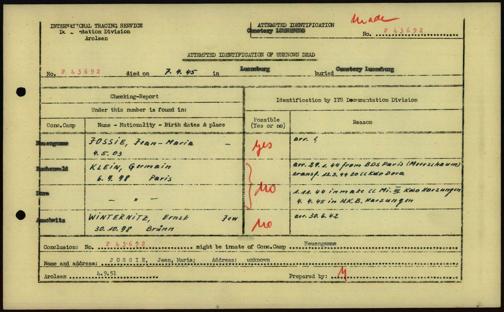 INTERNATIONAL TRACING SERVICE
Documentation Division
Arolsen
made
ATTEMPTED IDENTIFICATION
Cemetery LUENEBURG
No. F 43692
ATTEMPTED IDENTIFICATION OF UNKNOWN DEAD
No. F 43692 died on 7.4.45 in Lueneburg buried Cemetery Lueneburg
Checking-Report
Under this number is found in:
Identification by ITS Documentation Division
Conc.Camp
Name - Nationality - Birth dates & place
Possible (Yes or no)
Reason
Neuengamme FOSSIE, Jean-Maria - yes arr.
4.5.03
Buchenwald KLEIN, Germain arr. 29.1.44 from BDS Paris
6.9.98 Paris no transf. 12.3.44 to KL Kdo Dora
Dora - " - 1.11.44 inmate Kdo Harzungen
4.4.45 in H.K.B. Harzungen
Auschwitz WINTERNITZ, Ernst Jew no arr. 30.6.42
30.10.98 Brünn
Conclusion: No. F 43692 might be inmate of Conc.Camp Neuengamme
Name and address: JOSSIE, Jean, Maria; Address: unknown
Arolsen 4.9.51 Prepared by: